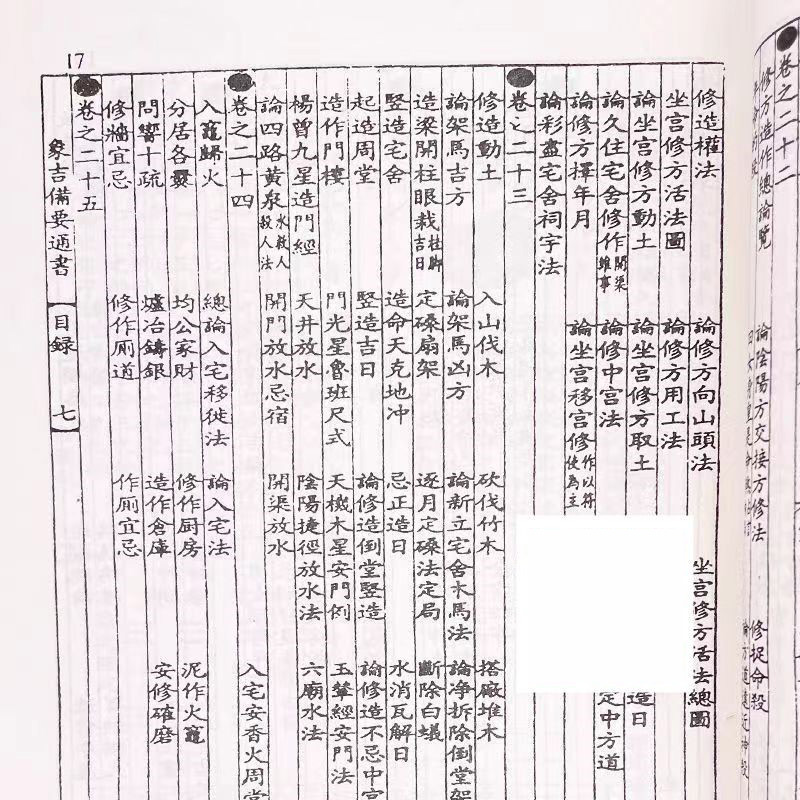 卷之二十二
修方造作總論覽 論陰陽方交接方修法 修捉命殺
修造權法 論修方向山頭法 坐宫修方活法總圖
坐宫修方活法圖 論修方用工法
論坐宫修方動土 論坐宫修方取土 造日
論久住宅舍修作開渠雜事 論修中宫法 定中方道
論修方擇年月 論坐宫移宫修作以符使為主
論彩畫宅舍祠宇法
卷之二十三
修造動土 入山伐木 砍伐竹木 搭廠堆木
論架馬吉方 論架馬凶方 論新立宅舍木馬法 論净拆除倒堂架
造梁開柱眼栽柱脚吉日 定磉扇架 逐月定磉法定局 斷除白蟻
竪造宅舍 造命天克地冲 忌正造日 水消瓦解日
起造周堂 竪造吉日 論修造倒堂竪造 論修造不忌中宫
造作門樓 門光星魯班尺式 天機木星安門例 玉輦經安門法
楊曾九星造門經 天井放水 陰陽捷徑放水法 六廟水法
論四路黄泉水救人殺人法 開門放水忌宿 開渠放水
卷之二十四 入宅安香火周堂
入竈歸火 總論入宅移徙法 論入宅法
分居各爨 均公家財 修作厨房 泥作火竈
問響十疏 爐冶鑄銀 造作倉庫 安修碓磨
修牆宜忌 修作厠道 作厠宜忌
卷之二十五
象吉備要通書 目録 七
17